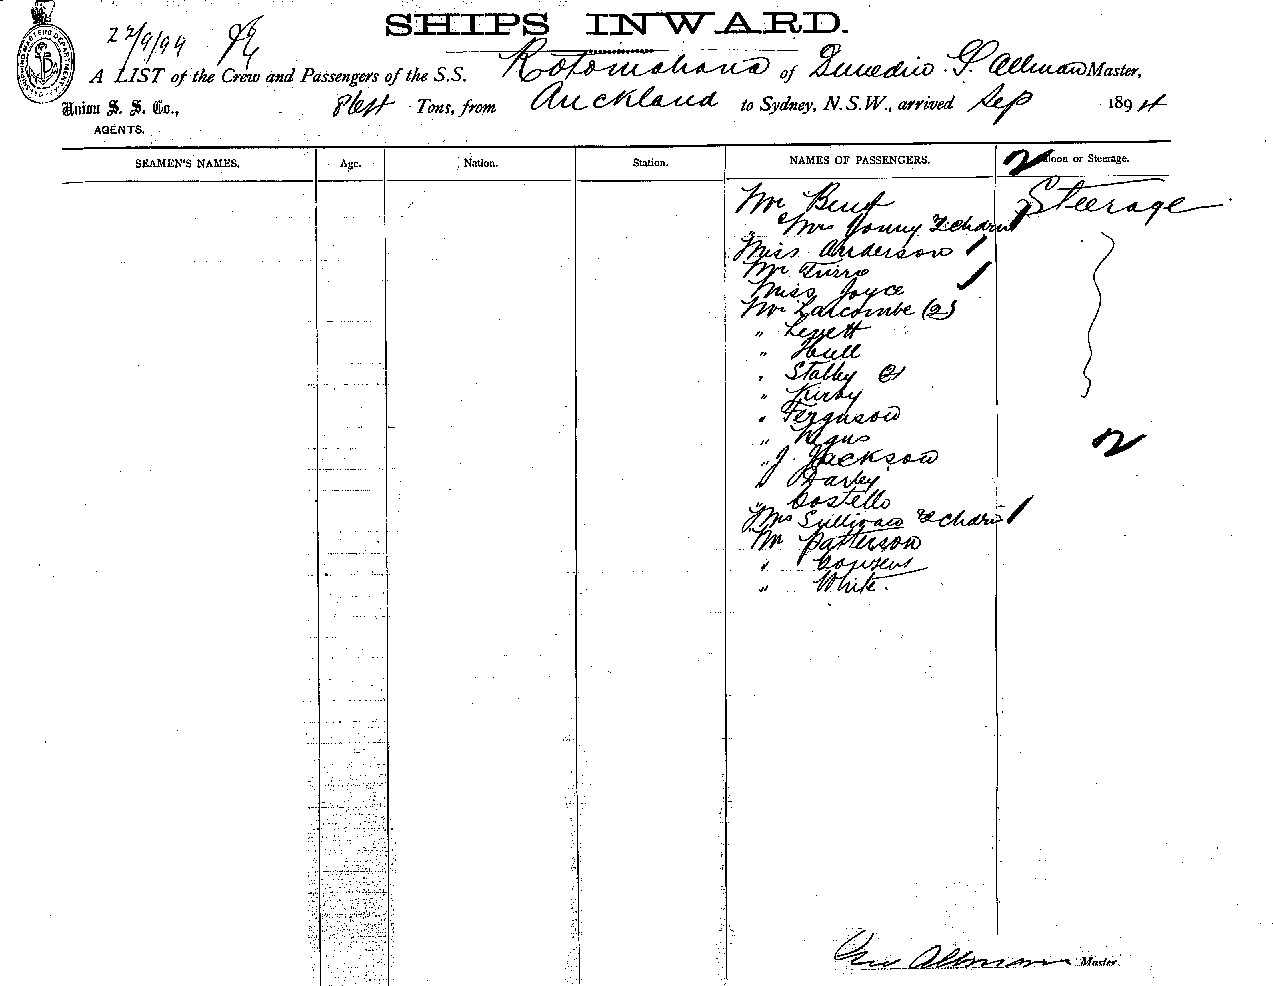 SHIPS INWARD.
22/9/99
A LIST of the Crew and Passengers of the S.S. Rotomahana of Dunedin. G. Allman Master,
Union S. S. Co., 864 Tons, from Auckland to Sydney, N.S.W., arrived Sep 1894
AGENTS.
SEAMEN'S NAMES. Age. Nation. Station. NAMES OF PASSENGERS. Saloon or Steerage.
Mr Steerage
Mrs
Miss Anderson
Mr
Miss Joyce
Mr Larcombe (2)
" Levett
" Hull
" Stalby
" Kirby
" Ferguson
" Negus
" J. Jackson
" Darby
" Costello
Mrs Sullivan & chdrn
Mr Patterson
"
" White.
Geo Allman Master.